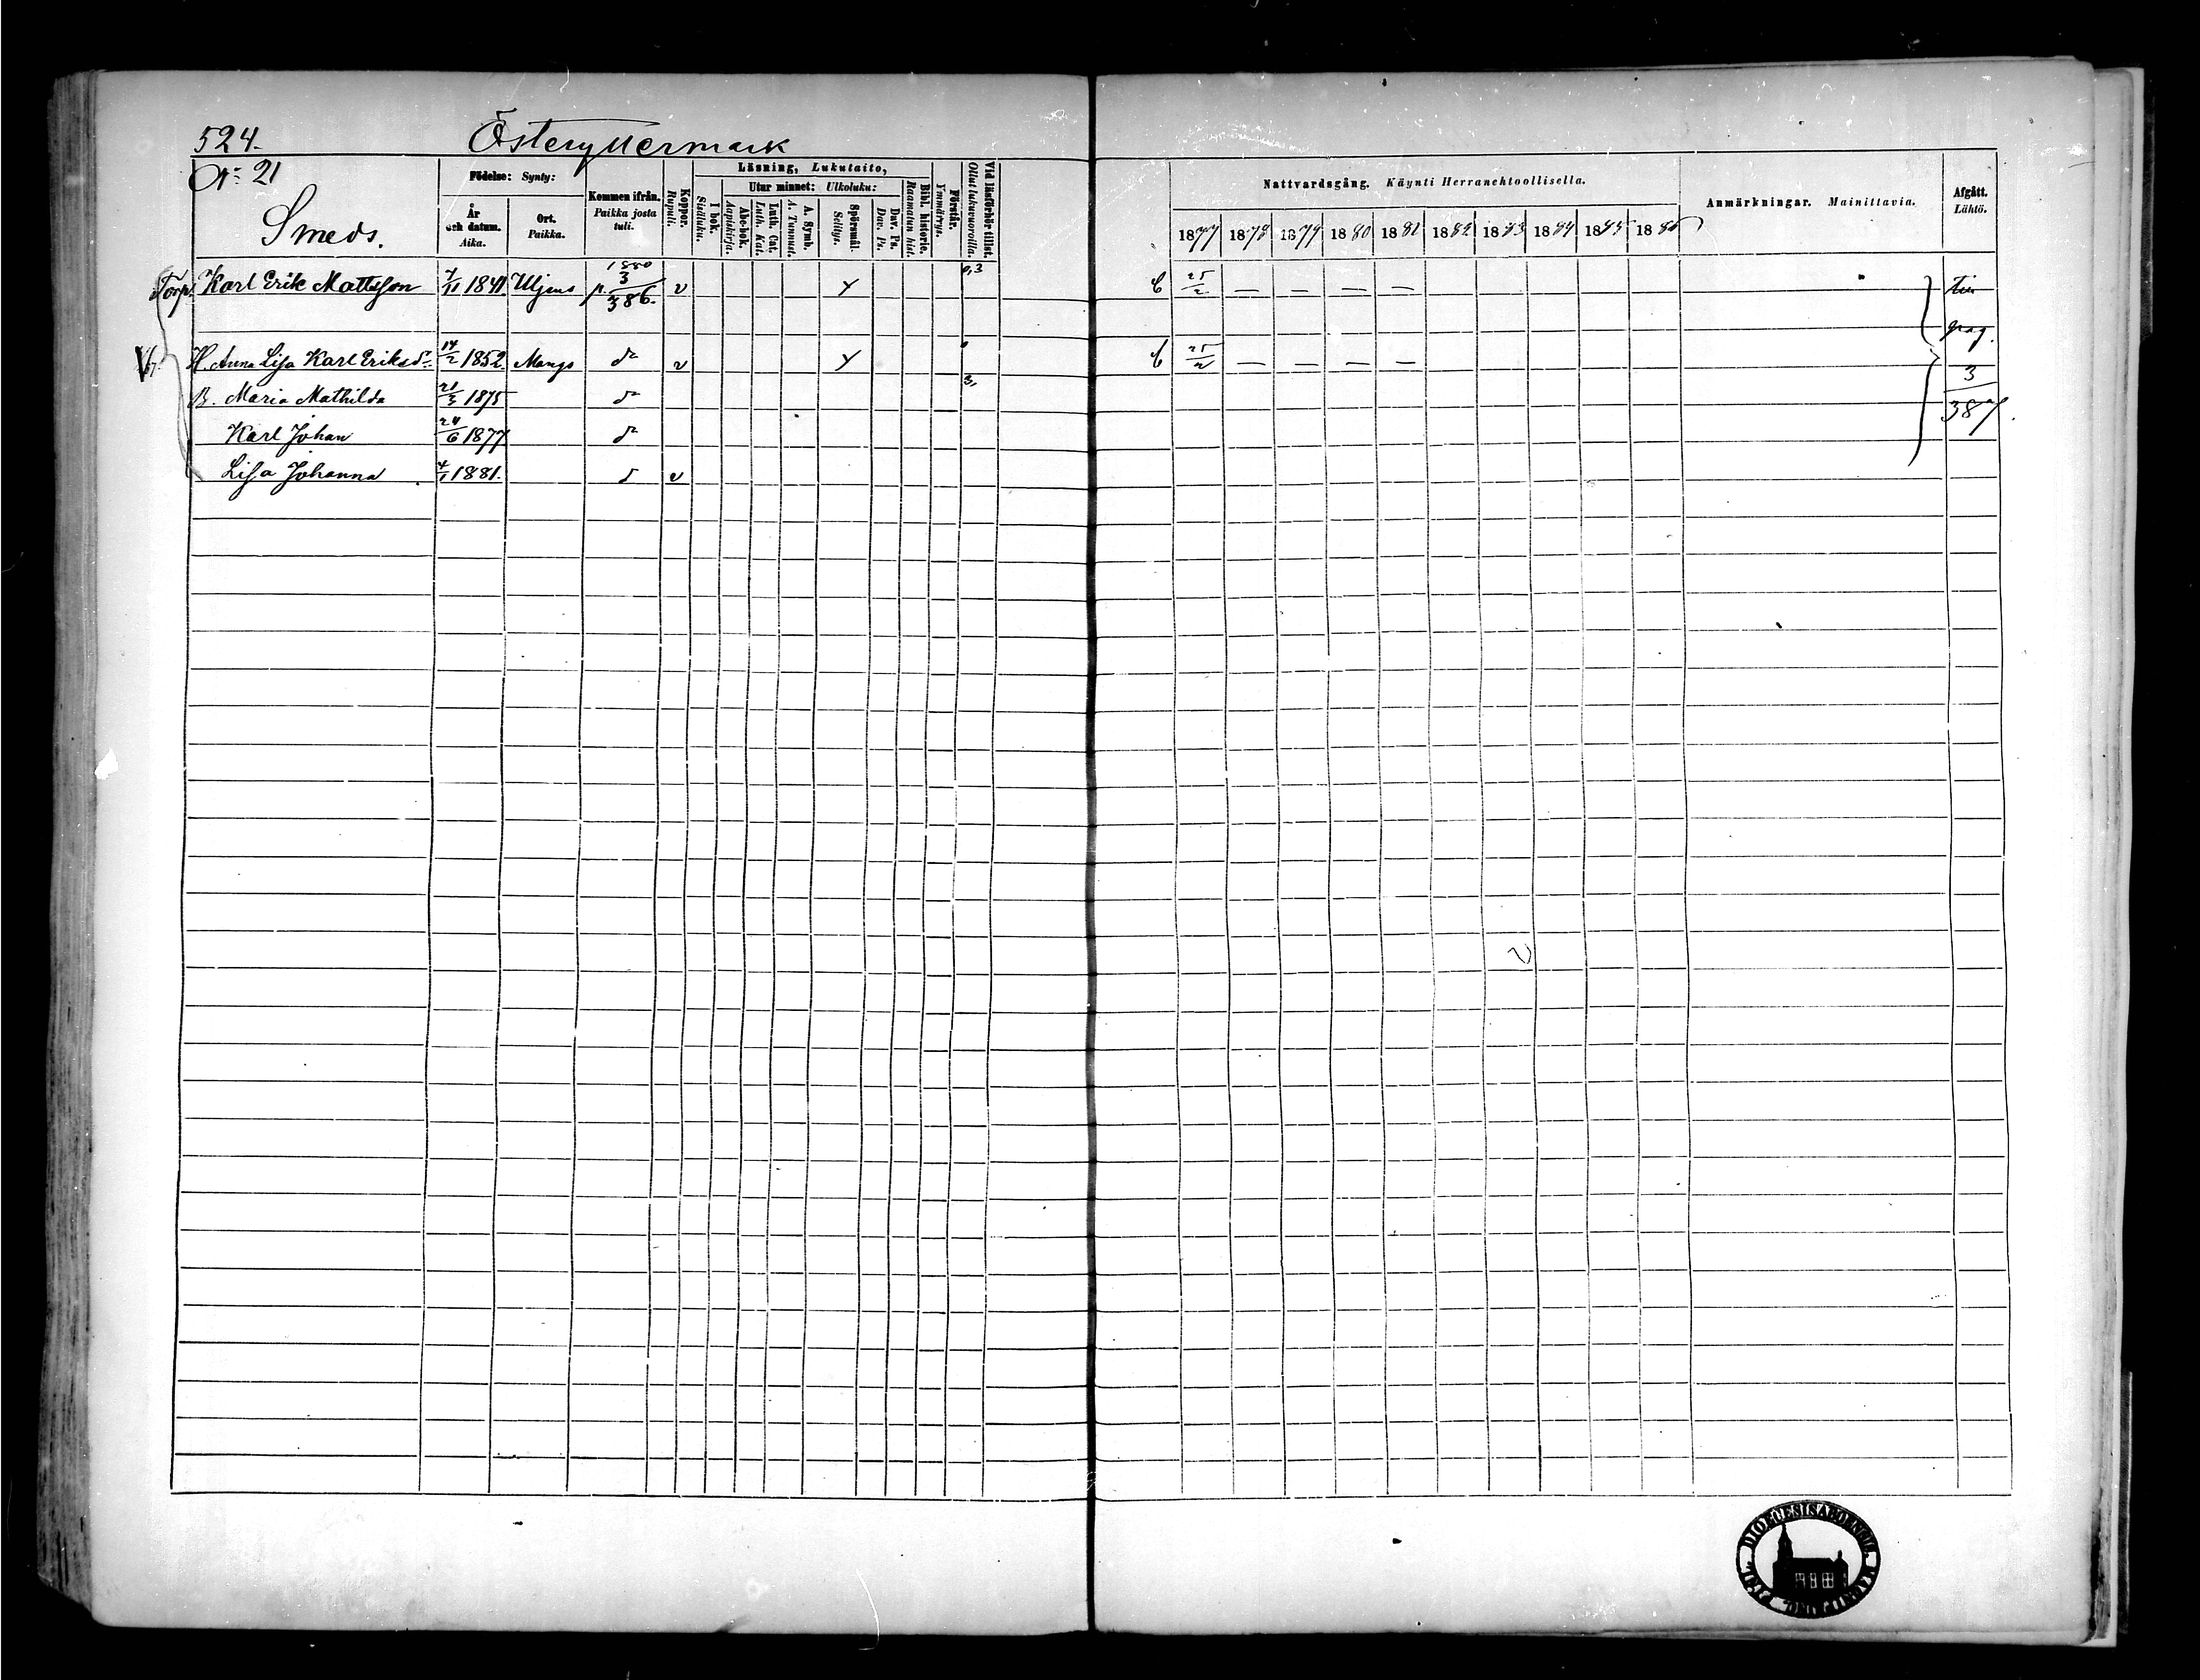 524.
Österyttermark
No 21
Smeds.
Födelse: Synty:
År och datum. Aika.
Ort. Paikka.
Kommen ifrån. Paikka josta tuli.
Koppor. Rupuli.
Läsning, Lukutaito,
I bok. Sisäluku.
Utur minnet: Ulkoluku:
Abc-bok. Aapiskirja.
Luth. Cat. Luth. Kat.
A. Symb. A. Tunnust.
Spörsmål. Selitys.
Dav. Ps. Dav. Ps.
Bibl. historie. Raamatun hist.
Förstår. Ymmärrys.
Vid läsförhör tillst. Ollut lukuvuoroilla.
Nattvardsgång. Käynti Herranehtoollisella.
1877 1878 1879 1880 1881 1882 1883 1884 1885 1886
Anmärkningar. Mainittavia.
Afgått. Lähtö.
Torp. Karl Erik Mattsson 7/11 1841 Uljens 1880 p. 3/386. v y 0,3 C 25/2 — — — —
pag.
H. Anna Lisa Karl Eriksdr 14/2 1852. Mangs do v y C 25/2 — — — —
B. Maria Mathilda 21/3 1875 do 3, 3/387.
Karl Johan 24/6 1877 do
Lisa Johanna 4/1 1881. d v
DIOECESIS ABOENSIS